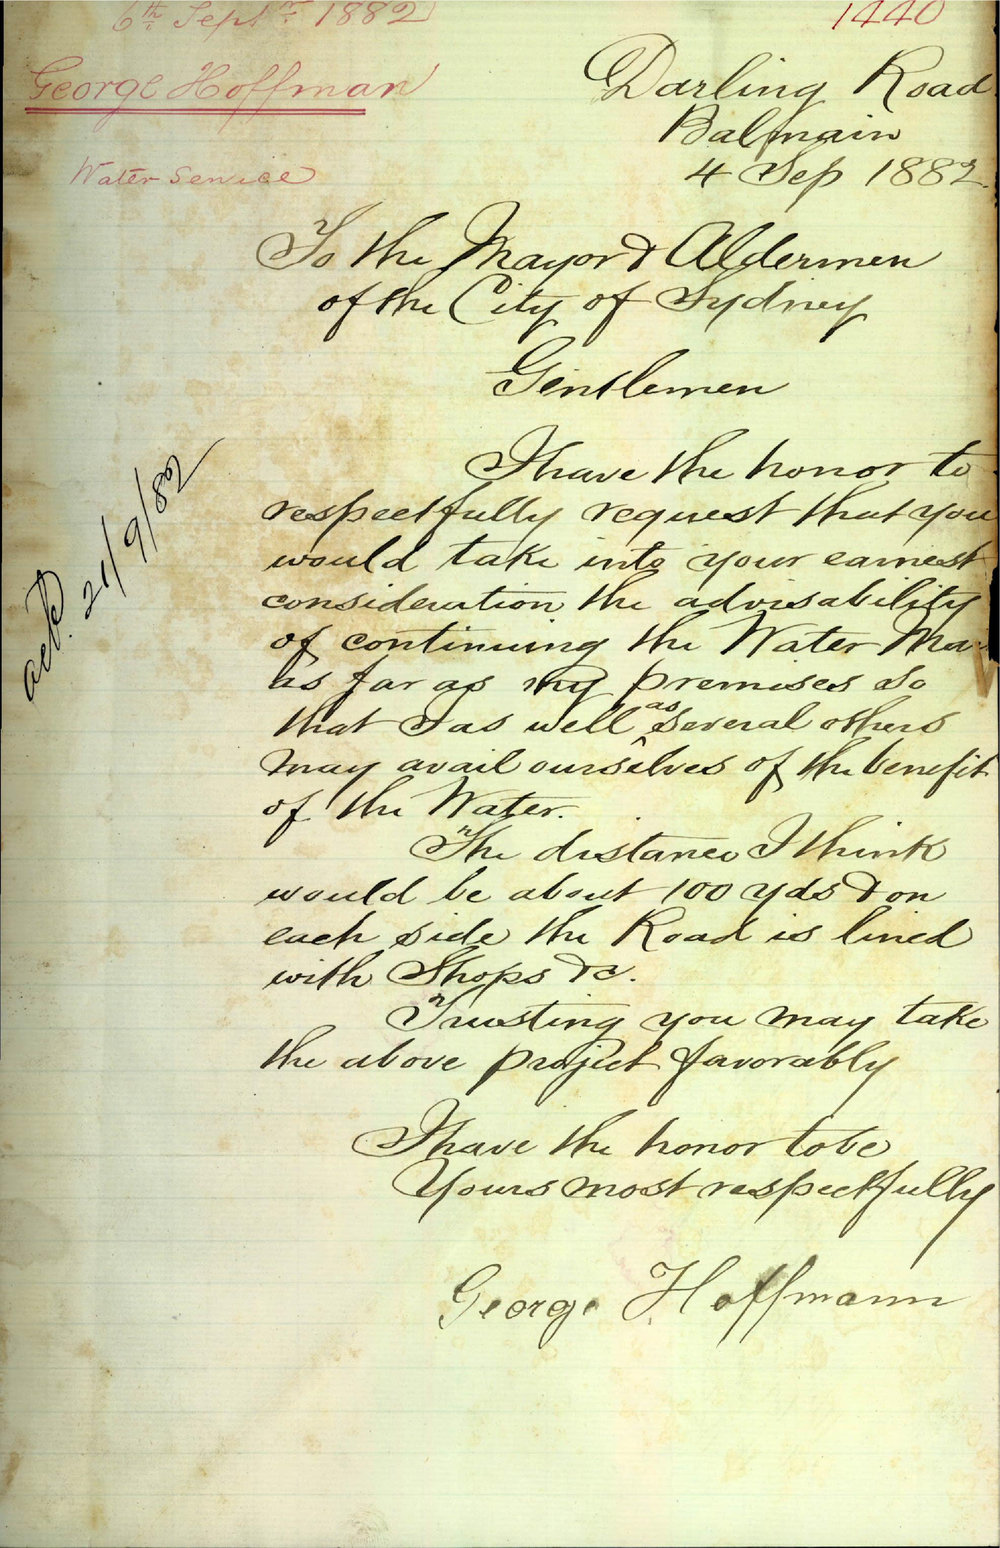 6th Septr. 1882
1440
George Hoffman
Water Service
Darling Road
Balmain
4 Sep 1882.
To the Mayor & Aldermen
of the City of Sydney
Gentlemen
I have the honor to
respectfully request that you
would take into your earnest
consideration the advisability
of continuing the Water
as far as my premises so
that I as well as several others
may avail ourselves of the benefit
of the Water.
The distance I think
would be about 100 yds & on
each side the Road is lined
with Shops &c.
Trusting you may take
the above project favorably
I have the honor to be
Yours most respectfully
George Hoffmann
21/9/82